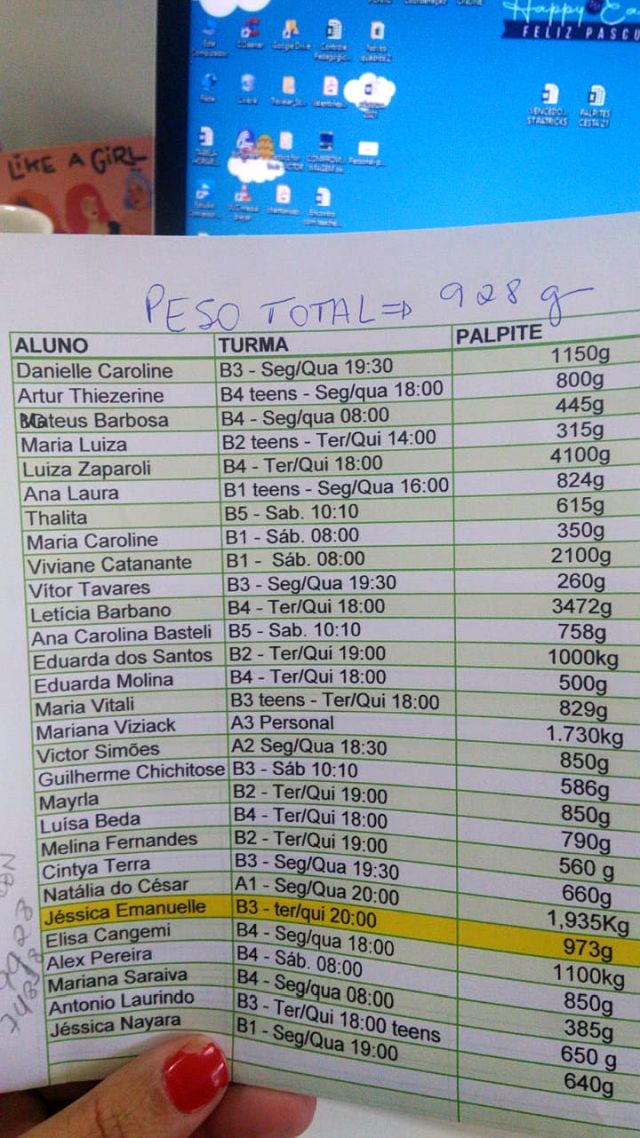 Happy Ea
FELIZ PASCO
Google Drive
LIKE A GIRL
PESO TOTAL => 928 g
ALUNO TURMA PALPITE
Danielle Caroline B3 - Seg/Qua 19:30 1150g
Artur Thiezerine B4 teens - Seg/qua 18:00 800g
Mateus Barbosa B4 - Seg/qua 08:00 445g
Maria Luiza B2 teens - Ter/Qui 14:00 315g
Luiza Zaparoli B4 - Ter/Qui 18:00 4100g
Ana Laura B1 teens - Seg/Qua 16:00 824g
Thalita B5 - Sab. 10:10 615g
Maria Caroline B1 - Sáb. 08:00 350g
Viviane Catanante B1 - Sáb. 08:00 2100g
Vítor Tavares B3 - Seg/Qua 19:30 260g
Letícia Barbano B4 - Ter/Qui 18:00 3472g
Ana Carolina Basteli B5 - Sab. 10:10 758g
Eduarda dos Santos B2 - Ter/Qui 19:00 1000kg
Eduarda Molina B4 - Ter/Qui 18:00 500g
Maria Vitali B3 teens - Ter/Qui 18:00 829g
Mariana Viziack A3 Personal 1.730kg
Victor Simões A2 Seg/Qua 18:30 850g
Guilherme Chichitose B3 - Sáb 10:10 586g
Mayrla B2 - Ter/Qui 19:00 850g
Luísa Beda B4 - Ter/Qui 18:00 790g
Melina Fernandes B2 - Ter/Qui 19:00 560 g
Cintya Terra B3 - Seg/Qua 19:30 660g
Natália do César A1 - Seg/Qua 20:00 1,935Kg
Jéssica Emanuelle B3 - ter/qui 20:00 973g
Elisa Cangemi B4 - Seg/qua 18:00 1100kg
Alex Pereira B4 - Sáb. 08:00 850g
Mariana Saraiva B4 - Seg/qua 08:00 385g
Antonio Laurindo B3 - Ter/Qui 18:00 teens 650 g
Jéssica Nayara B1 - Seg/Qua 19:00 640g